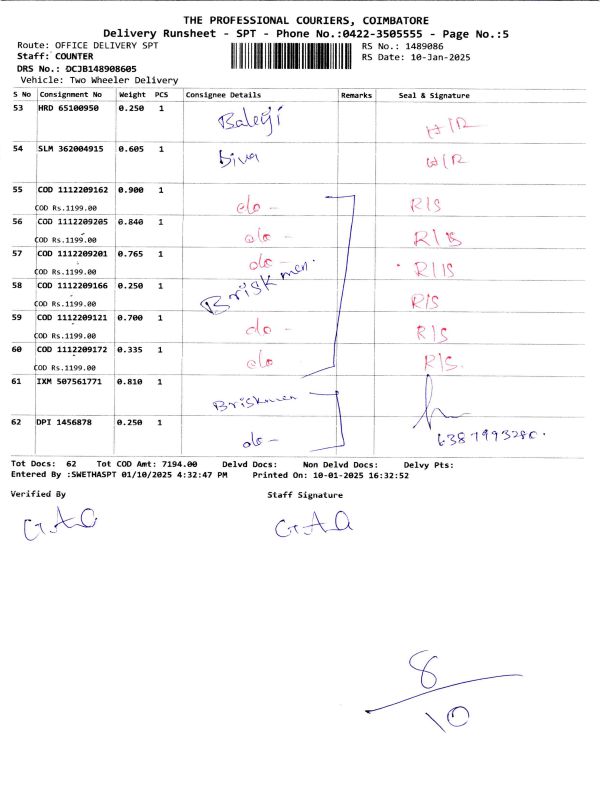 THE PROFESSIONAL COURIERS, COIMBATORE
Delivery Runsheet - SPT - Phone No.:0422-3505555 - Page No.:5
Route: OFFICE DELIVERY SPT RS No.: 1489086
Staff: COUNTER RS Date: 10-Jan-2025
DRS No.: DCJB148908605
Vehicle: Two Wheeler Delivery
S No Consignment No Weight PCS Consignee Details Remarks Seal & Signature
53 HRD 65100950 0.250 1 Baleyji H/R
54 SLM 362004915 0.605 1 Siva W/R
55 COD 1112209162 0.900 1 do - R/S
COD Rs.1199.00
56 COD 1112209205 0.840 1 do - R/S
COD Rs.1199.00
57 COD 1112209201 0.765 1 do - R/S
COD Rs.1199.00
58 COD 1112209166 0.250 1 Briskmen. R/S
COD Rs.1199.00
59 COD 1112209121 0.700 1 do - R/S
COD Rs.1199.00
60 COD 1112209172 0.335 1 do R/S.
COD Rs.1199.00
61 IXM 507561771 0.810 1 Briskmen
62 DPI 1456878 0.250 1 do - 6387993280.
Tot Docs: 62 Tot COD Amt: 7194.00 Delvd Docs: Non Delvd Docs: Delvy Pts:
Entered By :SWETHASPT 01/10/2025 4:32:47 PM Printed On: 10-01-2025 16:32:52
Verified By Staff Signature
8
10